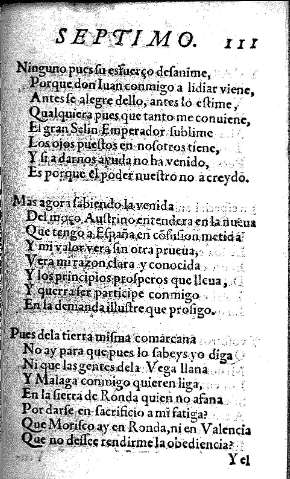 SEPTIMO. 111
Ninguno pues su esfuerço desanime,
Porque don Iuan conmigo a lidiar viene,
Antes se alegre dello, antes lo estime,
Qualquiera pues que tanto me conuiene,
El gran Selin Emperador sublime
Los ojos puestos en nosotros tiene,
Y si a darnos ayuda no ha venido,
Es porque el poder nuestro no a creydo.
Mas agora sabiendo la venida
Del moço Austrino entendera en la nueua
Que tengo a España en cõfusion metida
Y mi valor vera sin otra prueua,
Vera mi razon clara y conocida
Y los principios prosperos que lleua,
Y querra ser participe conmigo
En la demanda illustre que prosigo.
Pues dela tierra misma comarcana
No ay para que pues lo sabeys yo diga
Ni que las gentes de la Vega llana
Y Malaga conmigo quieren liga,
En la sierra de Ronda quien no afana
Por darse en sacrificio a mi fatiga?
Que Morisco ay en Ronda, ni en Valencia
Que no dessee rendirme la obediencia?
Y el